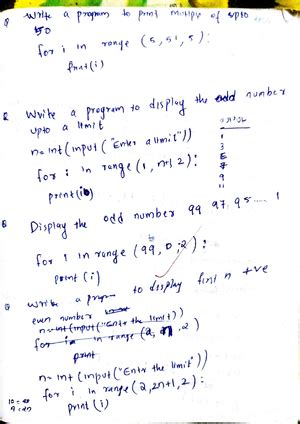 Q Write a program to print multiple of upto
50
for i in range (5, 51, 5):
print(i)
Q Write a program to display the odd number
upto a limit
n=int(input("Enter a limit"))
for i in range (1, n+1, 2):
print(i)
1
3
5
7
9
11
Q Display the odd number 99 97, 95 .... 1
for i in range (99, 0, -2):
print (i)
Q Write a to display first n +ve
even number
n=int(input("Entr the limit))
for in range (2, n, 2)
print
n=int (input("Entr the limit"))
for i in range (2, 2n+1, 2):
print (i)